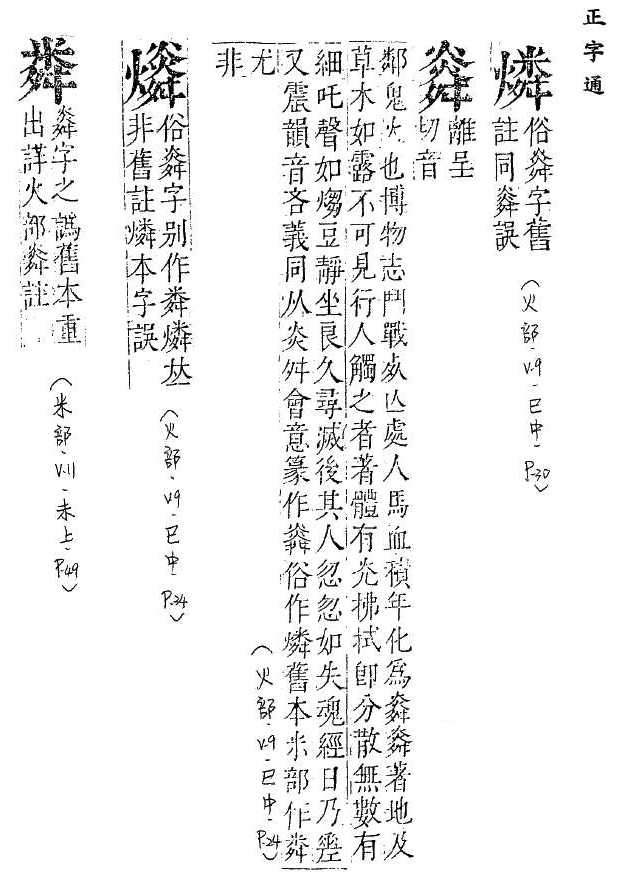 正字通
燐
俗粦字舊
註同粦誤
(火部-V.9-巳中-P.30)
㷠
離呈
切音
鄰鬼火也博物志鬥戰死亾處人馬血積年化爲㷠㷠著地及
草木如露不可見行人觸之者著體有光拂拭卽分散無數有
細吒聲如煼豆靜坐良久尋滅後其人忽忽如失魂經日乃瘥
又震韻音吝義同从炎舛會意篆作㷠俗作燐舊本米部作粦
尤
非
(火部-V.9-巳中-P.24)
俗㷠字別作粦燐𠀤
非舊註燐本字誤
(火部-V.9-巳中-P.24)
粦
㷠字之譌舊本重
出詳火部㷠註
(米部-V.11-未上-P.49)